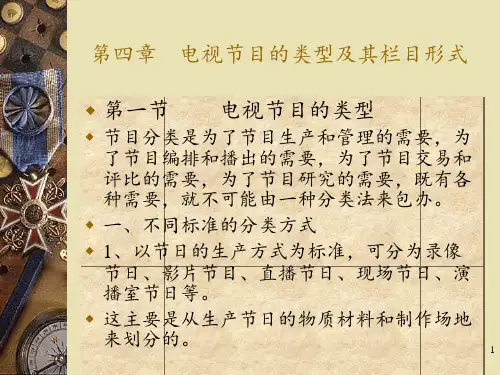 第四章　电视节目的类型及其栏目形式
第一节　　电视节目的类型
节目分类是为了节目生产和管理的需要，为
了节目编排和播出的需要，为了节目交易和
评比的需要，为了节目研究的需要，既有各
种需要，就不可能由一种分类法来包办。
一、不同标准的分类方式
1、以节目的生产方式为标准，可分为录像
节目、影片节目、直播节目、现场节目、演
播室节目等。
这主要是从生产节目的物质材料和制作场地
来划分的。
1